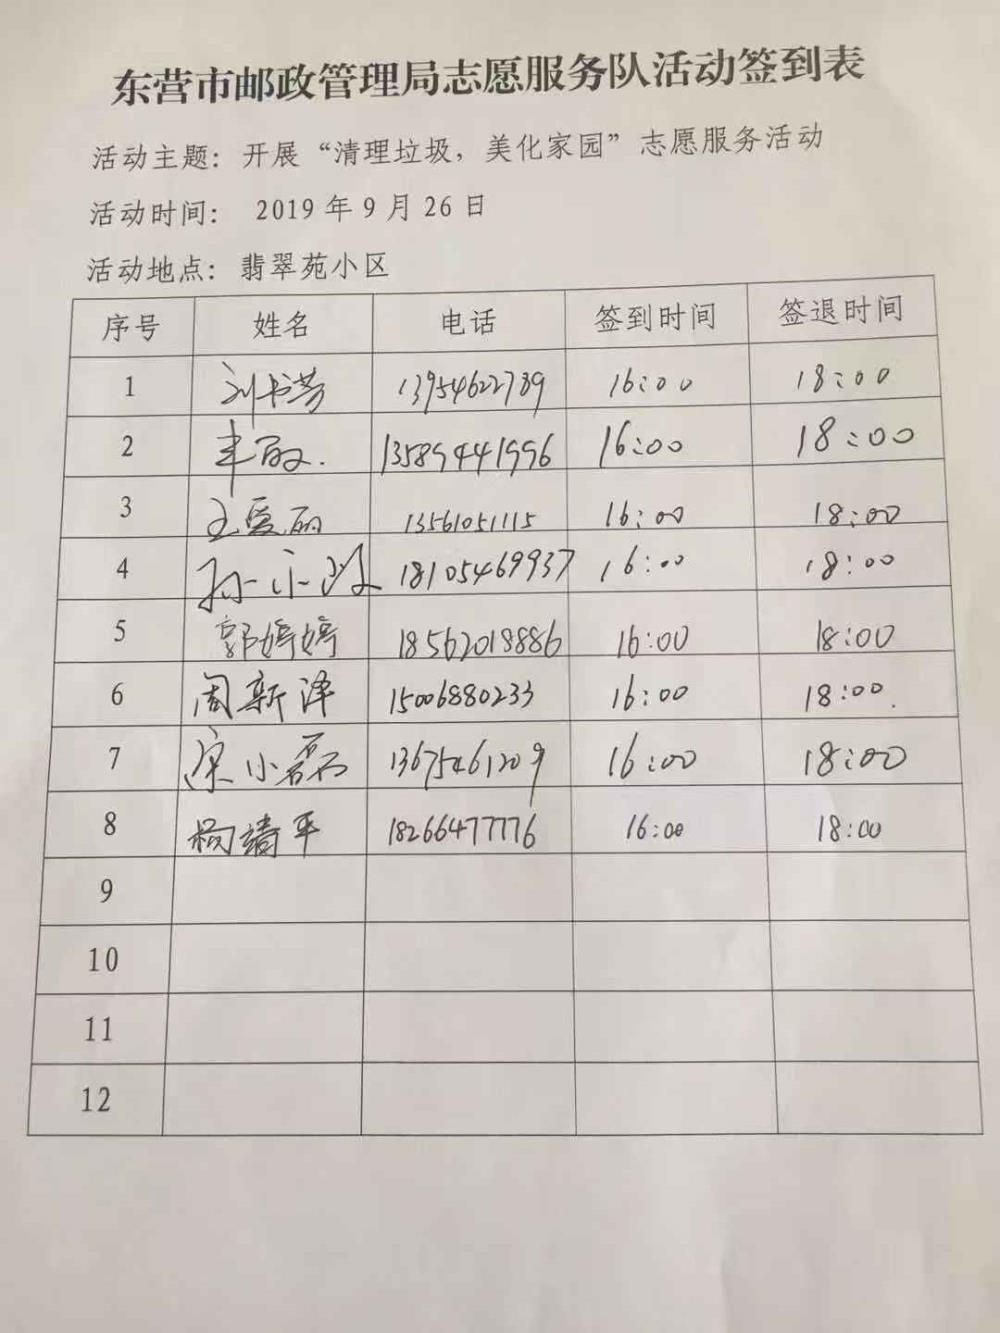 东营市邮政管理局志愿服务队活动签到表
活动主题：开展“清理垃圾，美化家园”志愿服务活动
活动时间： 2019 年 9 月 26 日
活动地点：翡翠苑小区
序号 姓名 电话 签到时间 签退时间
1 刘书芳 13954622789 16:00 18:00
2 丰敏. 13589441996 16:00 18:00
3 王爱丽 13561051115 16:00 18:00
4 孙小 18105469937 16:00 18:00
5 郭婷婷 18562018886 16:00 18:00
6 周新泽 15006880233 16:00 18:00.
7 宋小磊 13675461209 16:00 18:00
8 杨靖平 18266477776 16:00 18:00
9
10
11
12